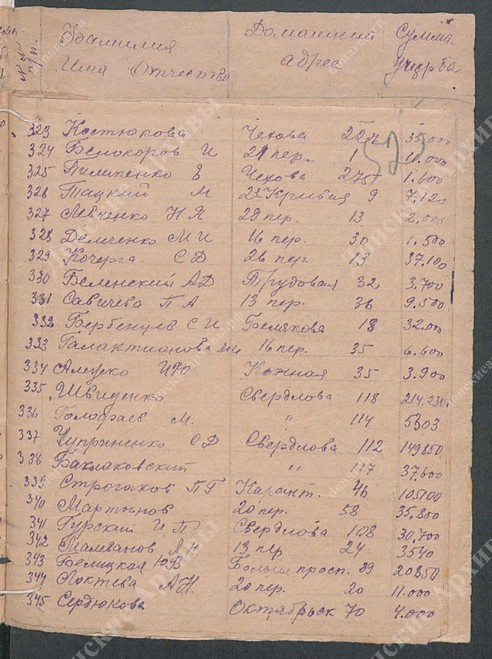 №№ п/п. Фамилия Имя Отчество Домашний адрес Сумма ущерба
52
323 Костюкова Чехова 227 35,000
324 Белокоров И 29 пер. 1 10.000
325 Пилипенко Е Чехова 275 1.600
326 Тацкий М 2я Кривая 9 7.120
327 Левченко Н Я 29 пер. 13 2.000
328 Демченко М И 16 пер. 30 1.500
329 Кочерга С Ф 26 пер. 13 37.100
330 Беленский А Д Трудовая 32 3.700
331 Савичева П А 13 пер. 36 9.500
332 Бербенцев С И Гоемакова 18 32.000
333 Галактионова 16 пер. 35 6.600
334 И Ю Южная 35 3.900
335 Швиденко Свердлова 118 214.230
336 М. " 114 5303
337 Чуприненко С Д Свердлова 112 149850
338 Баклаковский " 117 37,600
339 Строгаков П Г Карант. 46 10500
340 Мартынов 20 пер. 58 35,800
341 Гурский И П Свердлова 108 30,700
342 Малеванов 13 пер 24 3540
343 Белицкая Больш просп. 39 20850
344 Локтева А И. 20 пер. 20 11.000
345 Сердюкова Октябрьск 70 4.000